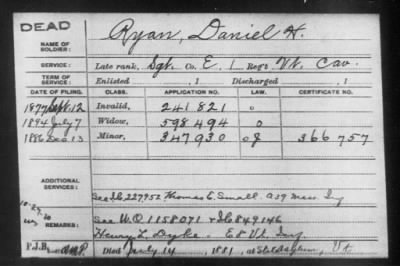 DEAD
Ryan, Daniel H.
NAME OF SOLDIER:
SERVICE: Late rank, Sgt. Co. E, 1 Reg't Vt. Cav.
TERM OF SERVICE: Enlisted , 1 Discharged , 1
DATE OF FILING. CLASS. APPLICATION NO. LAW. CERTIFICATE NO.
1877 Sept. 12 Invalid, 241 821 o
1894 July 7 Widow, 598 494 o
1886 Dec 13 Minor, 347 930 366 757
ADDITIONAL SERVICES:
See 227952 Thomas C. Small. A 39 Mass Inf
REMARKS: See W.O. 1158071 849146
Henry L. Dyke. E 8 Vt. Inf.
P.J.B. Died July 14, 1881, at Vt.